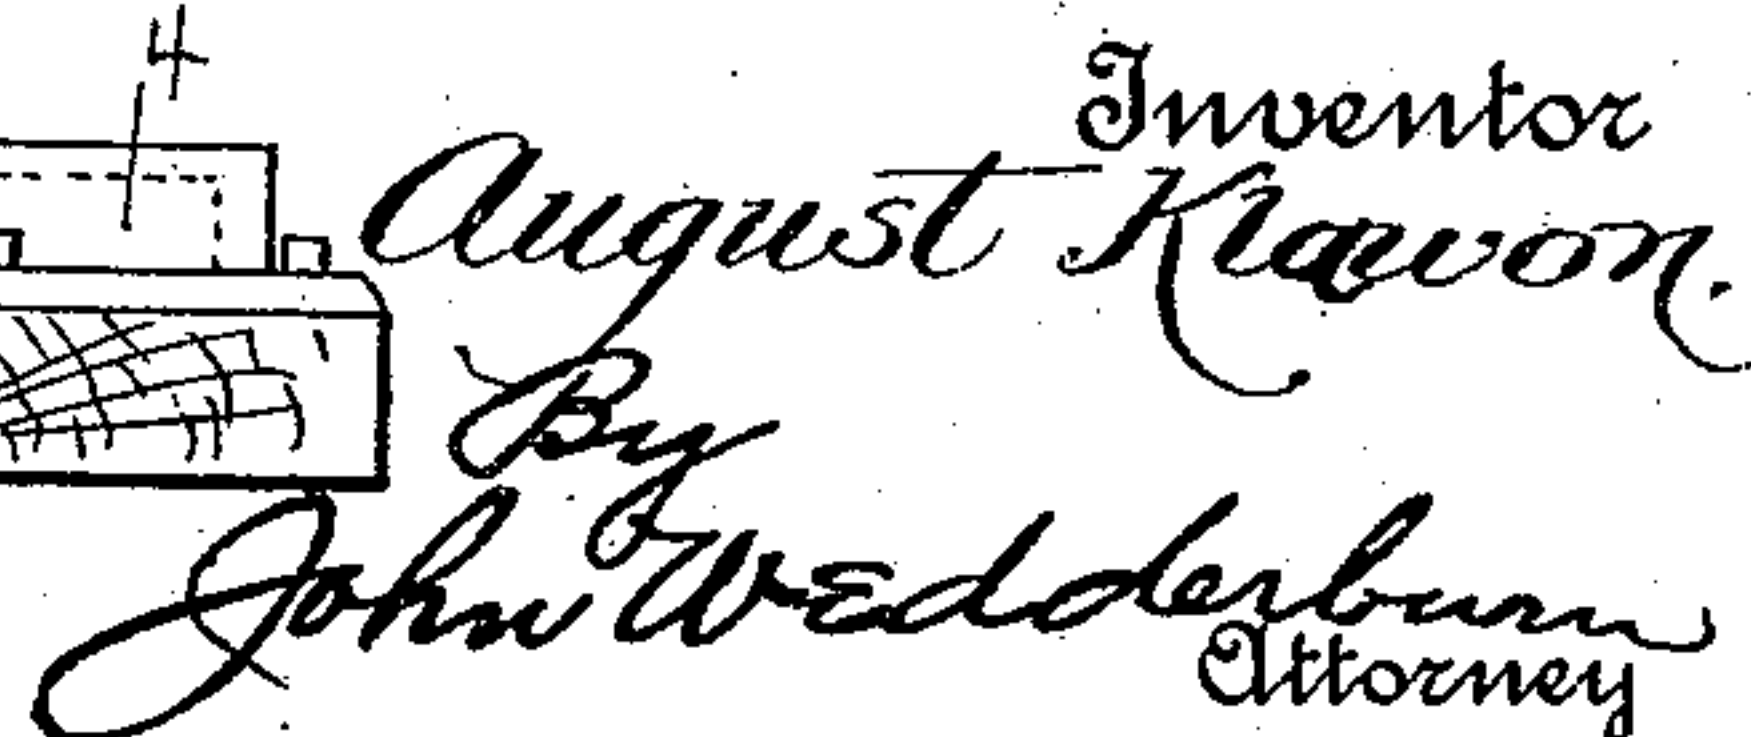 4
Inventor
August Klawon.
By
John Wedderburn
Attorney